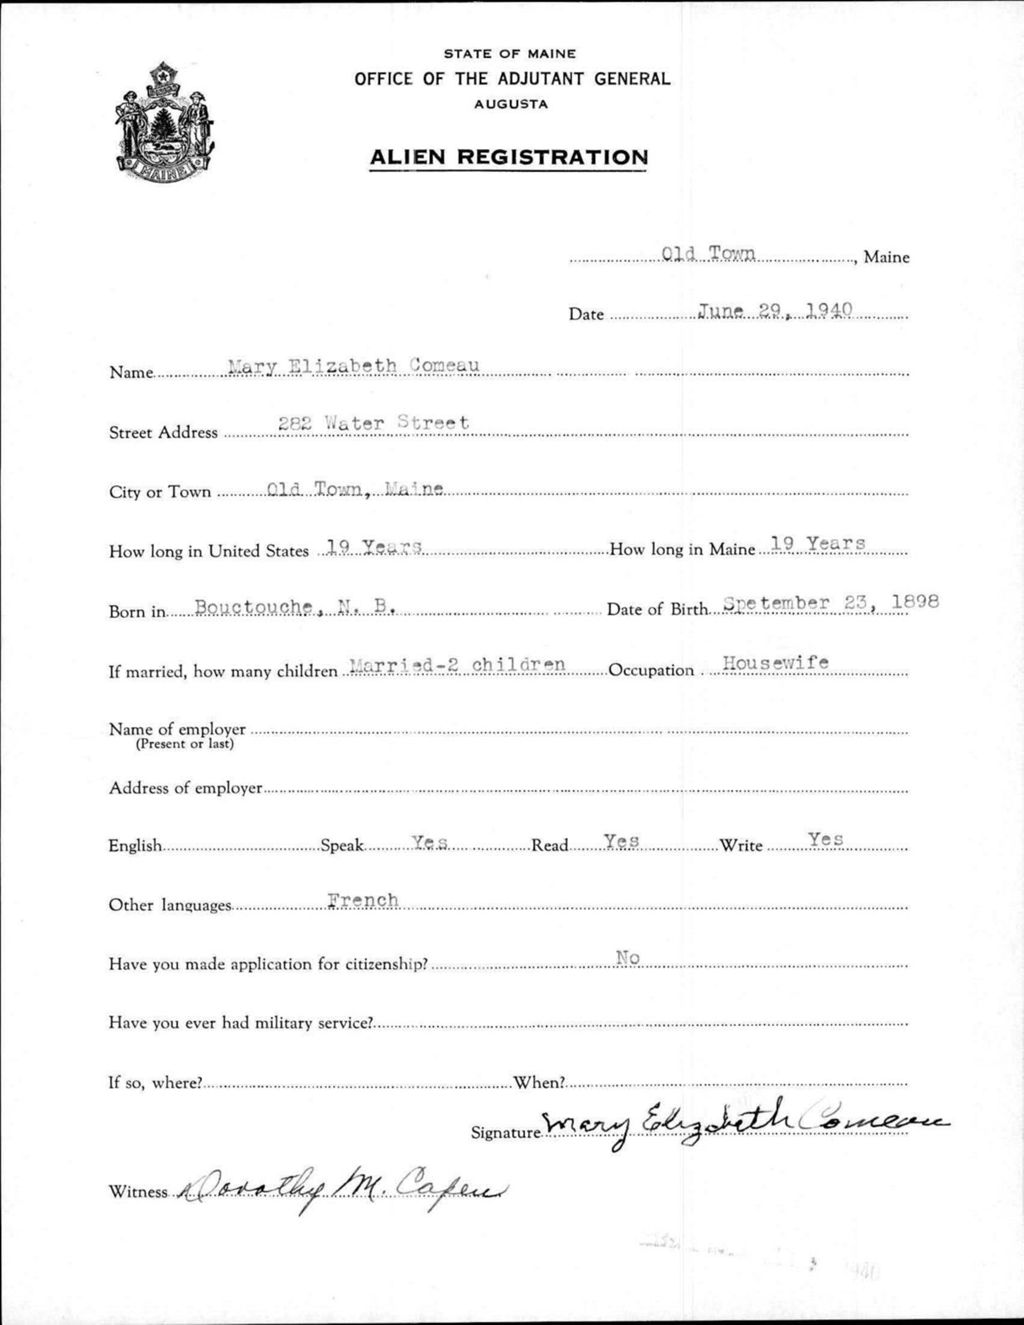 STATE OF MAINE
OFFICE OF THE ADJUTANT GENERAL
AUGUSTA
ALIEN REGISTRATION
MAINE
Old Town, Maine
Date June 29, 1940
Name Mary Elizabeth Comeau
Street Address 282 Water Street
City or Town Old Town, Maine
How long in United States 19 Years How long in Maine 19 Years
Born in Bouctouche, N. B. Date of Birth Spetember 23, 1898
If married, how many children Married-2 children Occupation Housewife
Name of employer
(Present or last)
Address of employer
English Speak Yes Read Yes Write Yes
Other languages French
Have you made application for citizenship? No
Have you ever had military service?
If so, where? When?
Signature Mary Elizabeth Comeau
Witness Dorothy M. Capen